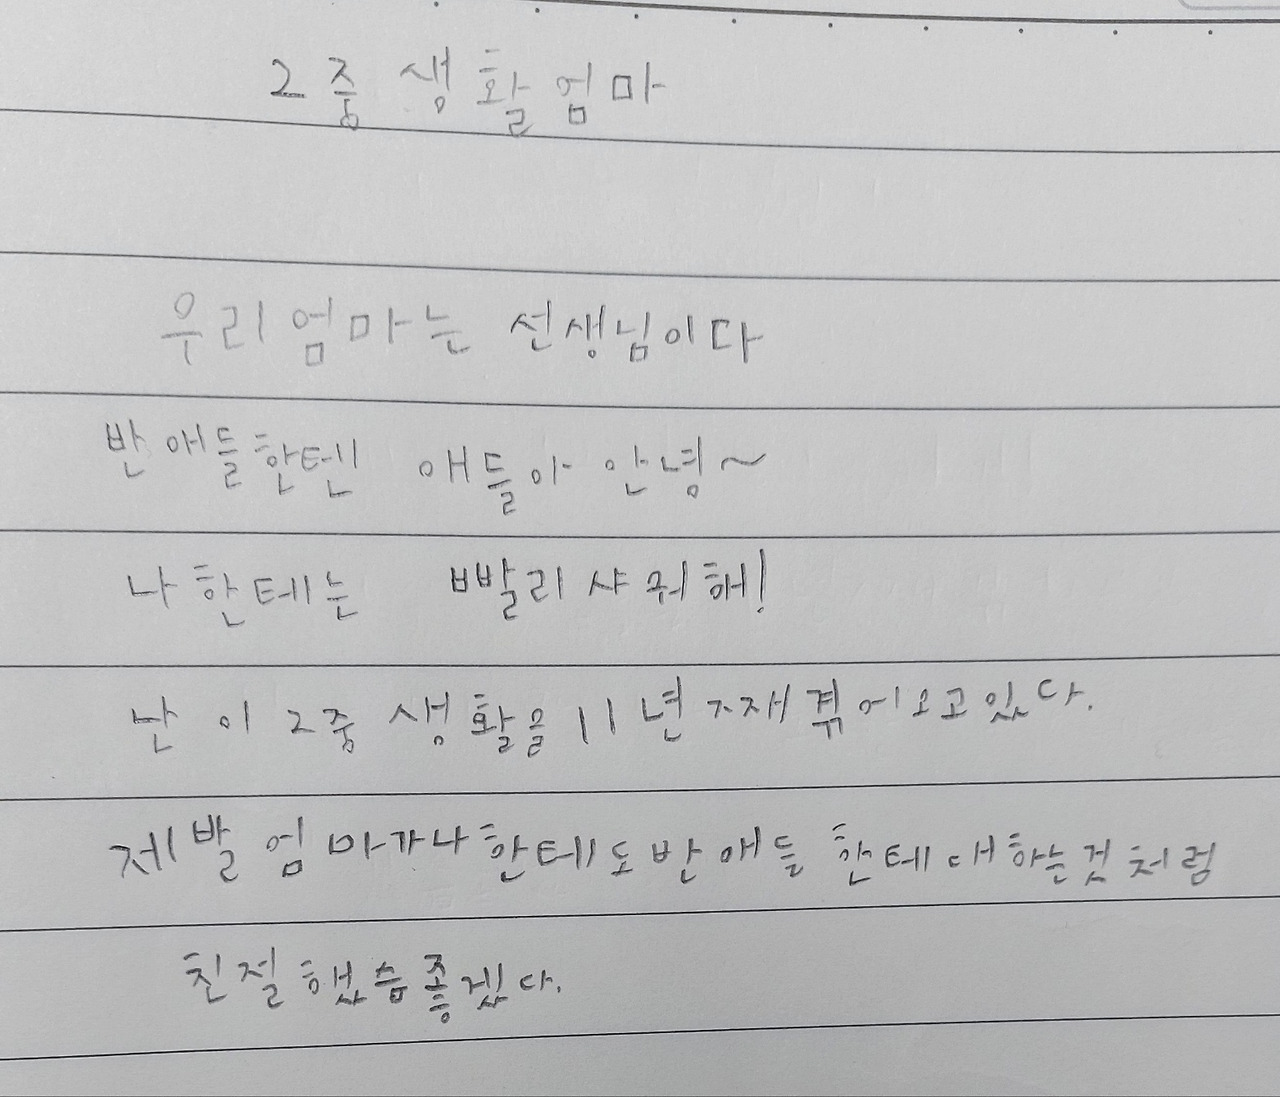 2중 생활 엄마
우리 엄마는 선생님이다
반 애들한텐 애들아 안녕~
나한테는 빨리 샤워해!
난 이 2중 생활을 11년 째 겪어오고있다.
제발 엄마가 나한테도 반 애들 한테 대하는것 처럼
친절했습좋겠다.